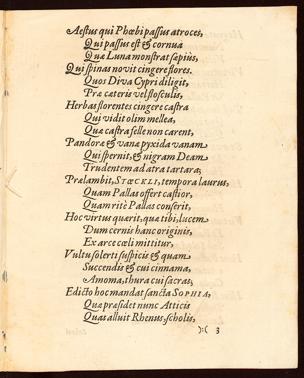 Aestus qui Phœbi passus atroces,
Qui passus est & cornua
Quæ Luna monstrat sæpius,
Qui spinas novit cingere flores.
Quos Diva Cypri diligit,
Præ cateris vel flosculis,
Herbas florentes cingere castra
Qui vidit olim mellea,
Quæ castra felle non carent,
Pandoræ & vanæ pyxida vanam
Qui spernit, & nigram Deam
Trudentem ad atra tartara;
Prælambit, STŒCKLI, tempora laurus,
Quam Pallas offert castior,
Quam ritè Pallas conserit,
Hoc virtus quærit, quæ tibi, lucem
Dum cernis hanc originis,
Ex arce cœli mittitur,
Vultu solerti suspicis & quam
Succendis & cui cinnama,
Amoma, thura cui sacras;
Edicto hoc mandat sancta SOPHIA,
Quæ præsidet nunc Atticis
Quas alluit Rhenus, scholis,
):( 3